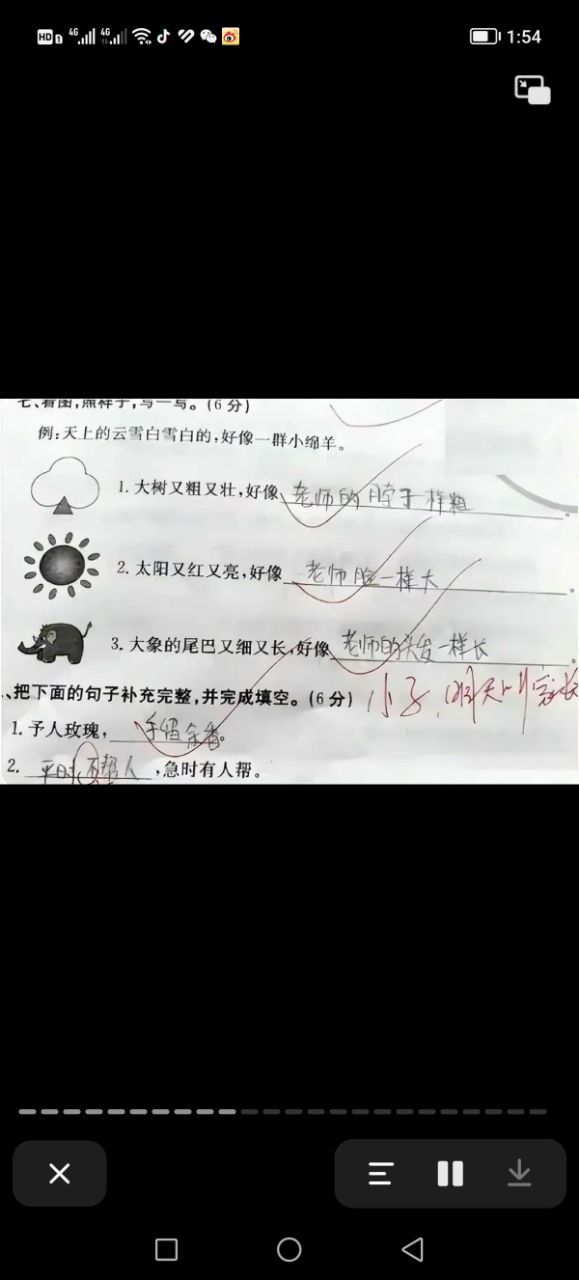 HD 1 4G 4G 1:54
七、看图,照样子,写一写。(6分)
例:天上的云雪白雪白的,好像一群小绵羊。
1. 大树又粗又壮,好像老师的脖子一样粗。
2. 太阳又红又亮,好像老师脸一样大。
3. 大象的尾巴又细又长,好像老师的头发一样长。
、把下面的句子补充完整,并完成填空。(6分) 小子,明天叫家长
1. 予人玫瑰,手留余香。
2. 平时不帮人,急时有人帮。